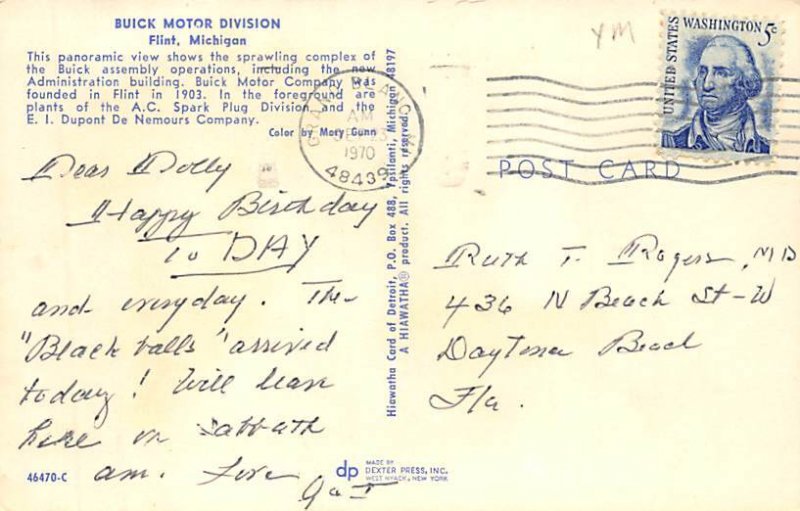 BUICK MOTOR DIVISION
Flint, Michigan
This panoramic view shows the sprawling complex of
the Buick assembly operations, including the new
Administration building. Buick Motor Company was
founded in Flint in 1903. In the foreground are
plants of the A.C. Spark Plug Division and the
E. I. Dupont De Nemours Company.
Color by Mary Gunn
Dear Dolly
Happy Birthday
To DAY
and everyday. The
"Black balls" arrived
today! Will leave
here on Sabbath
am. Love
46470-C
Hiawatha Card of Detroit, P.O. Box 488, Ypsilanti, Michigan 48197
A HIAWATHA® product. All rights reserved.
dp
MADE BY
DEXTER PRESS, INC.
WEST NYACK, NEW YORK
GRAND BLANC
AM
1970
48439
YM
UNITED STATES
WASHINGTON 5c
POST CARD
Ruth T. Rogers, MD
436 N Beach St-W
Daytona Beach
Fla.